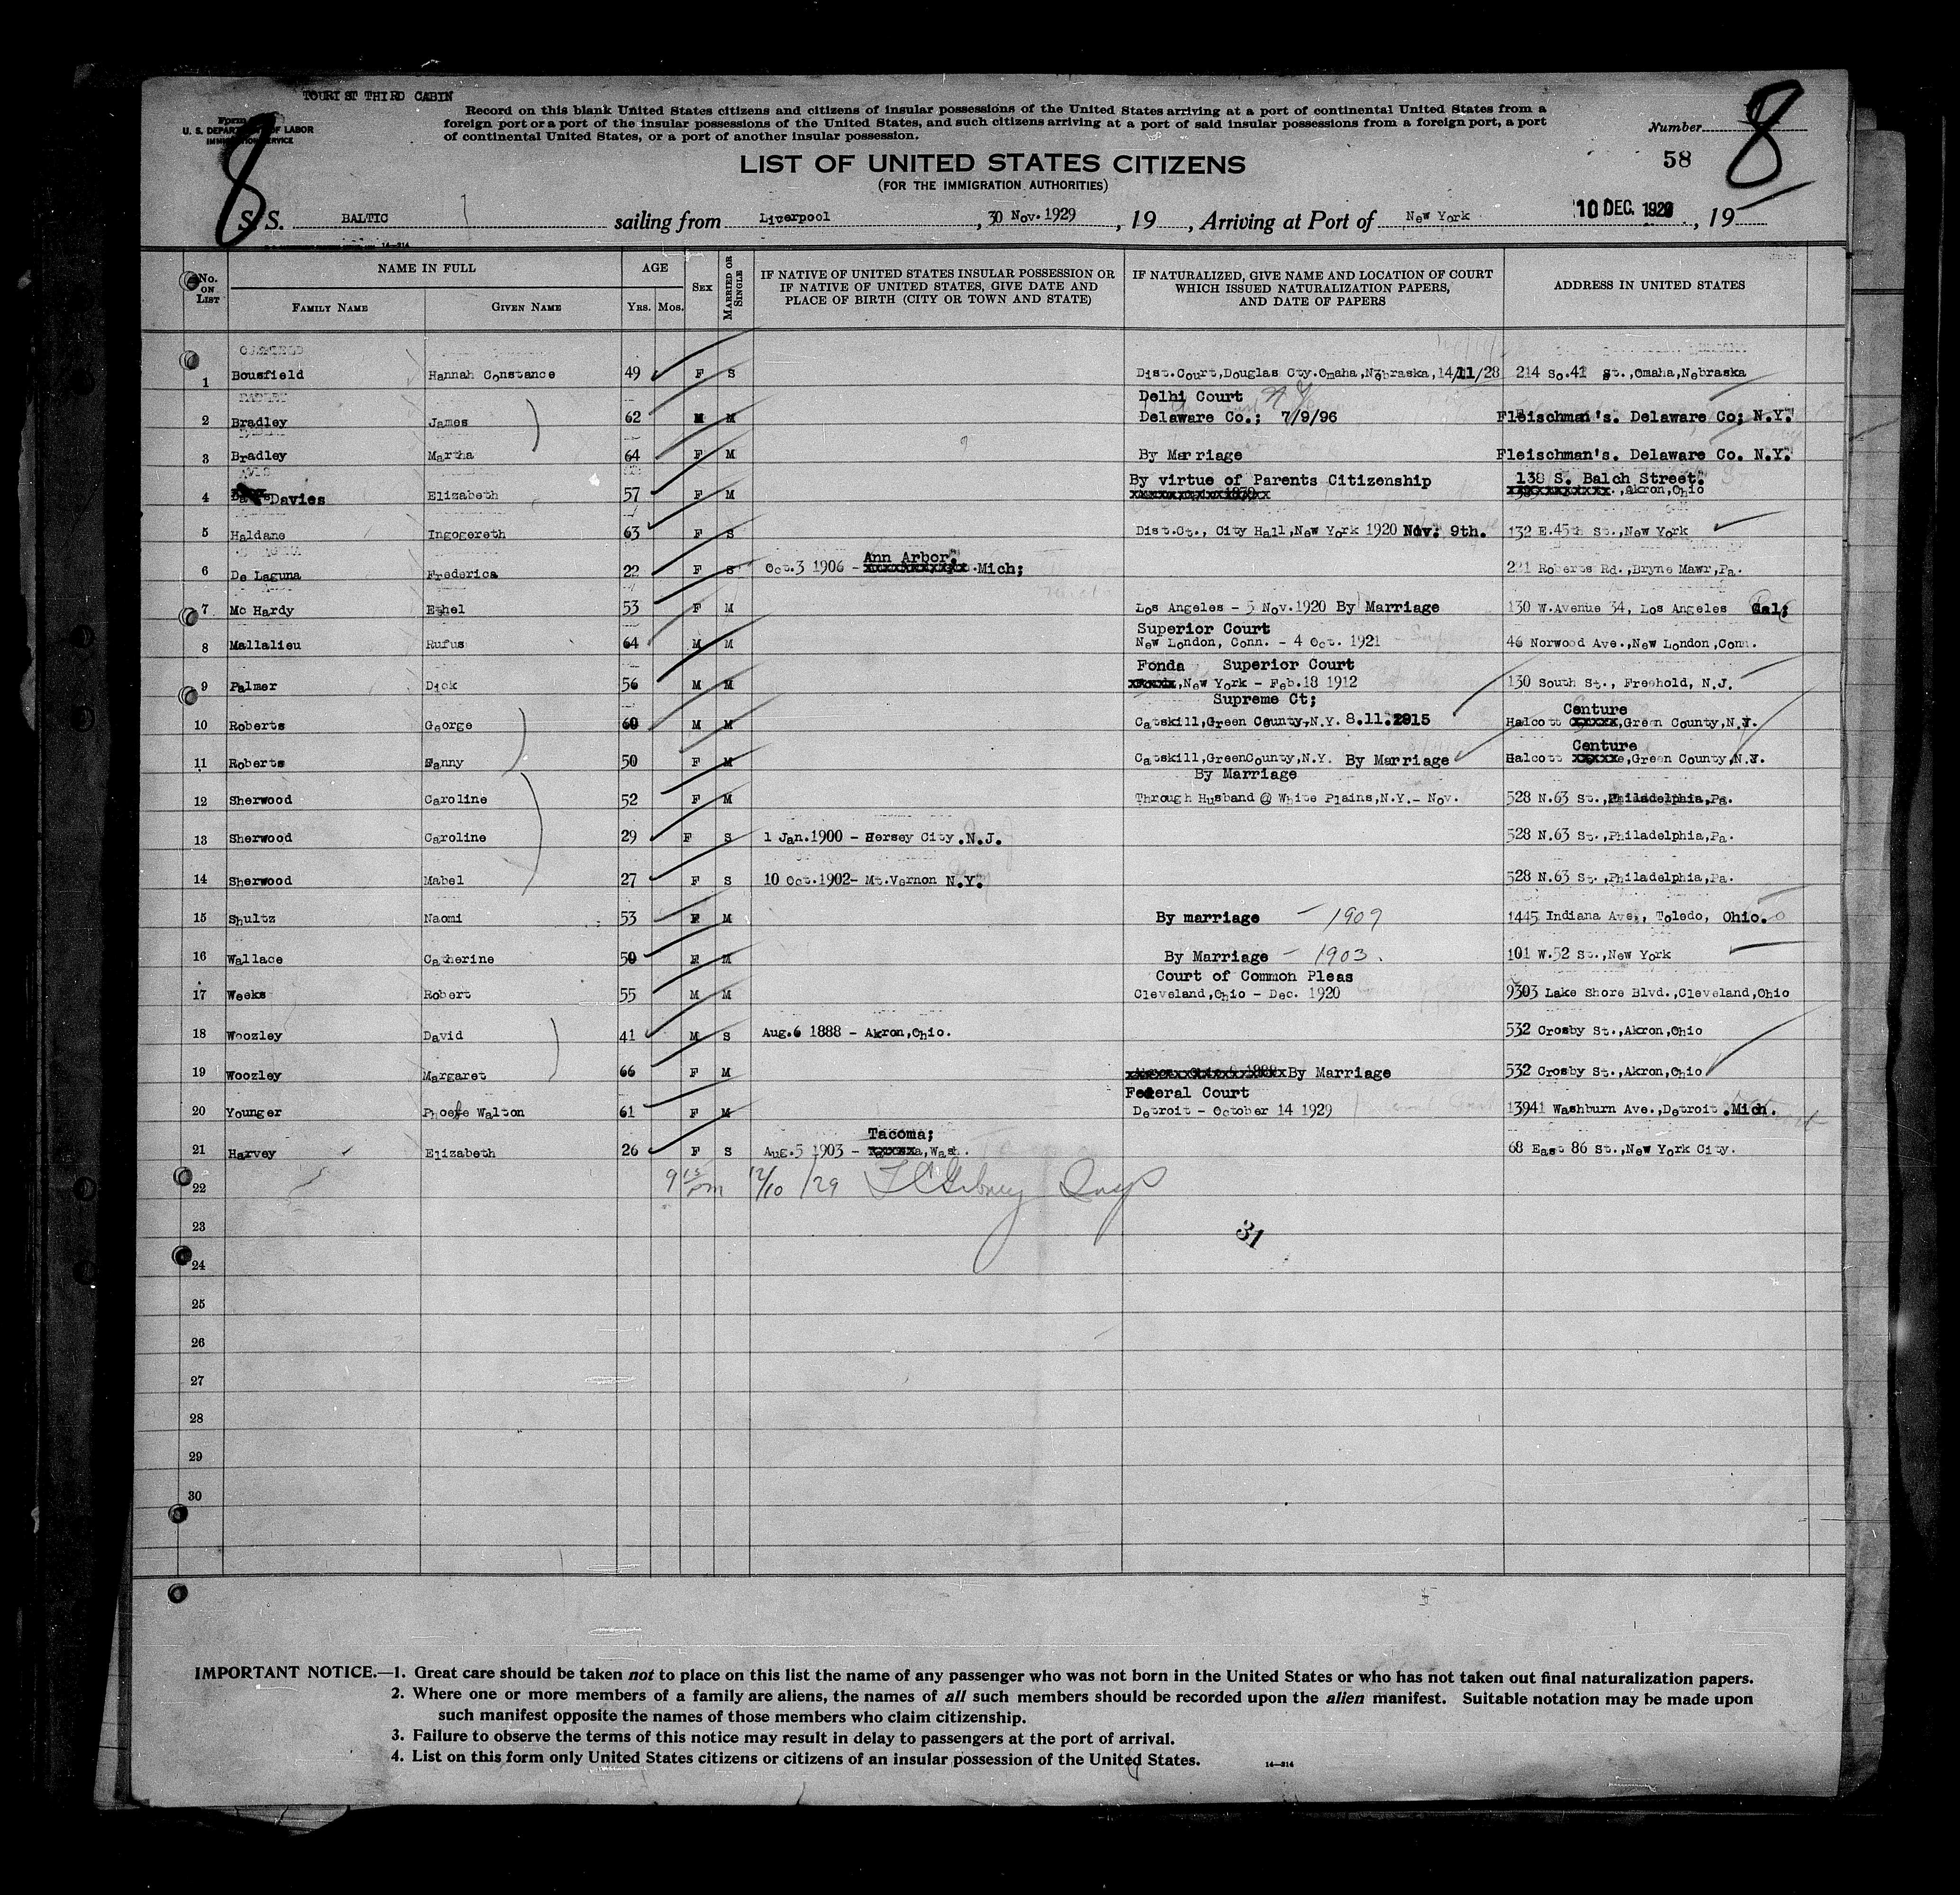 TOURIST THIRD CABIN
Form
U. S. DEPARTMENT OF LABOR
IMMIGRATION SERVICE
Record on this blank United States citizens and citizens of insular possessions of the United States arriving at a port of continental United States from a
foreign port or a port of the insular possessions of the United States, and such citizens arriving at a port of said insular possessions from a foreign port, a port
of continental United States, or a port of another insular possession.
Number 8
8
58
LIST OF UNITED STATES CITIZENS
(FOR THE IMMIGRATION AUTHORITIES)
S. S. BALTIC sailing from Liverpool, 30 Nov. 1929, 19, Arriving at Port of New York 10 DEC. 1929, 19
14—814
No. ON LIST
NAME IN FULL
FAMILY NAME
GIVEN NAME
AGE
YRS. MOS.
SEX
MARRIED OR SINGLE
IF NATIVE OF UNITED STATES INSULAR POSSESSION OR
IF NATIVE OF UNITED STATES, GIVE DATE AND
PLACE OF BIRTH (CITY OR TOWN AND STATE)
IF NATURALIZED, GIVE NAME AND LOCATION OF COURT
WHICH ISSUED NATURALIZATION PAPERS,
AND DATE OF PAPERS
ADDRESS IN UNITED STATES
1 Bousfield Hannah Constance 49 F S Dist.Court,Douglas Cty.Omaha,Nebraska,14/11/28 214 So.41 St.,Omaha,Nebraska
Delhi Court
2 Bradley James 62 M M Delaware Co.; 7/9/96 Fleischman's. Delaware Co; N.Y.
3 Bradley Martha 64 F M By Marriage Fleischman's. Delaware Co. N.Y.
By virtue of Parents Citizenship 138 S. Balch Street.
4 Davies Elizabeth 57 F M ,Akron,Ohio
5 Haldane Ingogereth 63 F S Dist.Ct., City Hall,New York 1920 Nov. 9th. 132 E.45th St.,New York
Ann Arbor.
6 De Laguna Frederica 22 F S Oct.3 1906 - Mich; 221 Roberts Rd.,Bryne Mawr,Pa.
7 Mc Hardy Ethel 53 F M Los Angeles - 5 Nov.1920 By Marriage 130 W.Avenue 34, Los Angeles Cal;
Superior Court
8 Mallalieu Rufus 64 M M New London, Conn. - 4 Oct. 1921 46 Norwood Ave.,New London,Conn.
Fonda Superior Court
9 Palmer Dick 56 M M ,New York - Feb.18 1912 130 South St., Freehold, N.J.
Supreme Ct; Centure
10 Roberts George 60 M M Catskill,Green County,N.Y. 8.11.1915 Halcott ,Green County,N.Y.
Centure
11 Roberts Fanny 50 F M Catskill,GreenCounty,N.Y. By Marriage Halcott ,Green County,N.Y.
By Marriage
12 Sherwood Caroline 52 F M Through Husband @ White Plains,N.Y.- Nov. 528 N.63 St.,Philadelphia,Pa.
13 Sherwood Caroline 29 F S 1 Jan.1900 - Hersey City.N.J. 528 N.63 St.,Philadelphia,Pa.
14 Sherwood Mabel 27 F S 10 Oct.1902- Mt.Vernon N.Y. 528 N.63 St.,Philadelphia,Pa.
15 Shultz Naomi 53 F M By marriage - 1909 1445 Indiana Ave., Toledo, Ohio.
16 Wallace Catherine 50 F M By Marriage - 1903. 101 W.52 St.,New York
Court of Common Pleas
17 Weeks Robert 55 M M Cleveland,Ohio - Dec. 1920 9303 Lake Shore Blvd.,Cleveland,Ohio
18 Woozley David 41 M S Aug.6 1888 - Akron,Ohio. 532 Crosby St.,Akron,Ohio
19 Woozley Margaret 66 F M By Marriage 532 Crosby St.,Akron,Ohio
Federal Court
20 Younger Phoebe Walton 61 F M Detroit - October 14 1929 13941 Washburn Ave.,Detroit.Mich.
Tacoma;
21 Harvey Elizabeth 26 F S Aug.5 1903 - ,Wash. 68 East 86 St.,New York City.
22 9 15 PM 12/10/29
23
31
24
25
26
27
28
29
30
IMPORTANT NOTICE.—1. Great care should be taken not to place on this list the name of any passenger who was not born in the United States or who has not taken out final naturalization papers.
2. Where one or more members of a family are aliens, the names of all such members should be recorded upon the alien manifest. Suitable notation may be made upon
such manifest opposite the names of those members who claim citizenship.
3. Failure to observe the terms of this notice may result in delay to passengers at the port of arrival.
4. List on this form only United States citizens or citizens of an insular possession of the United States.
14—814